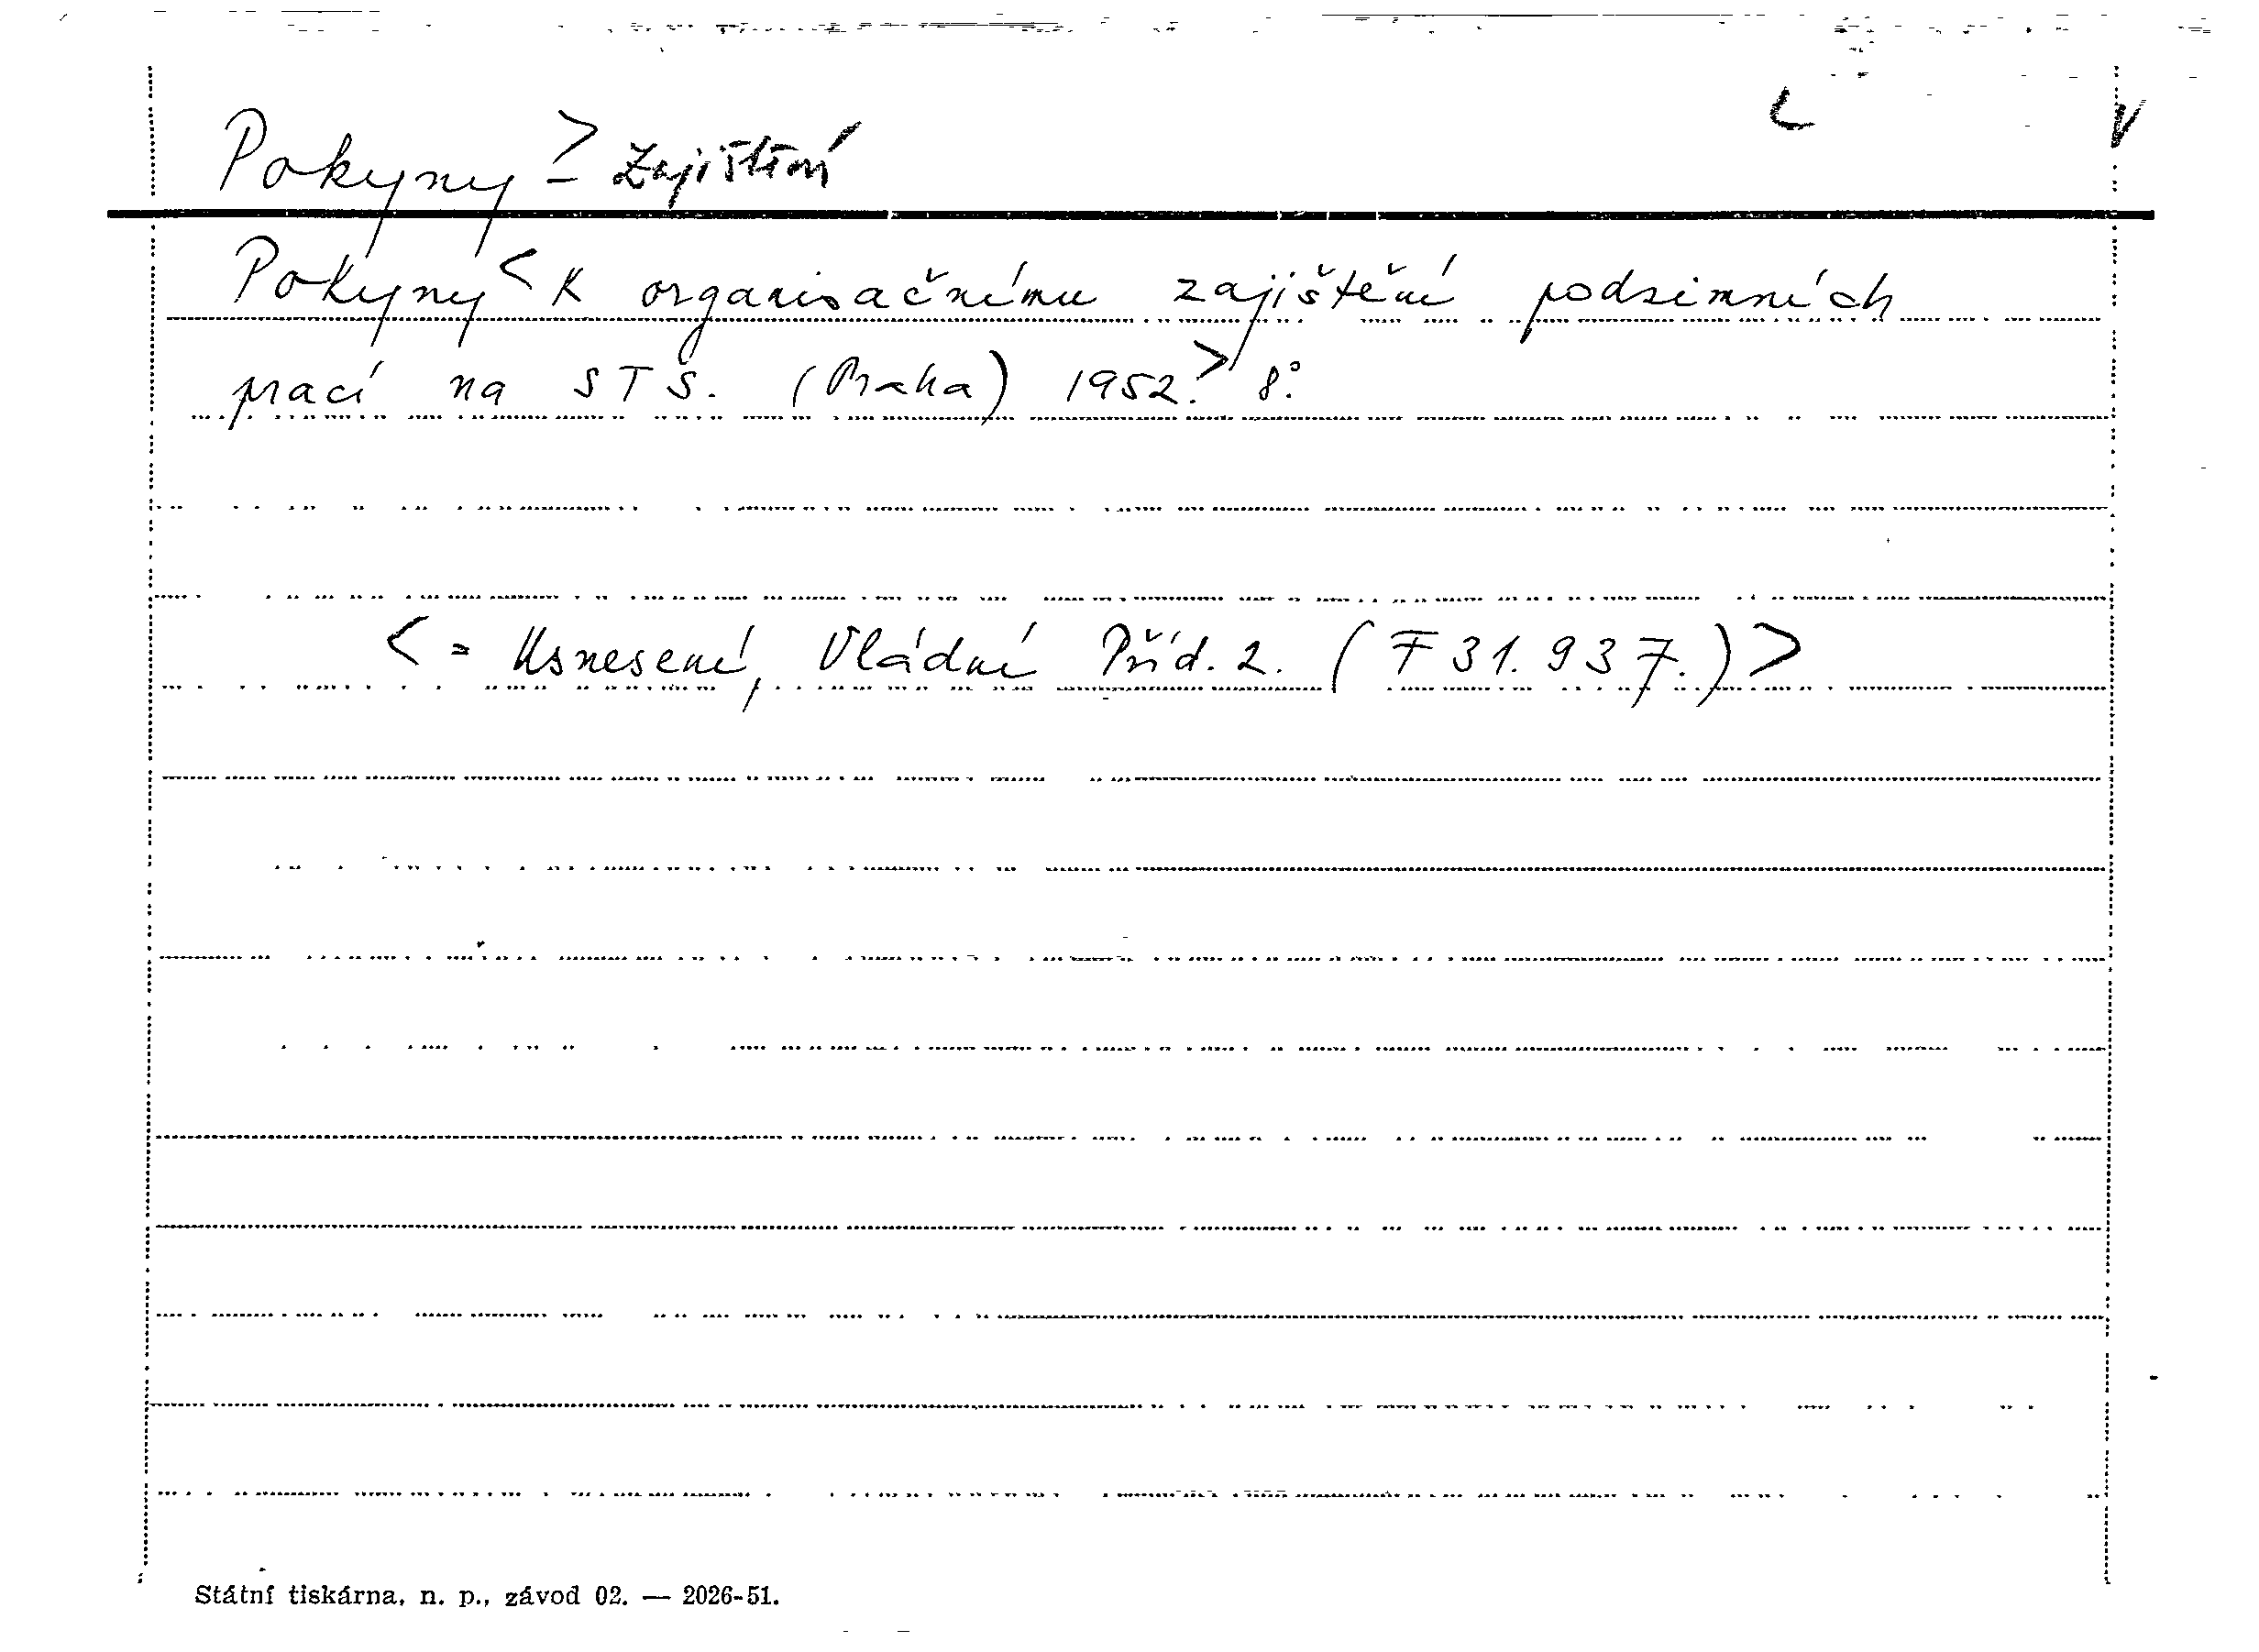 Pokyny > - Zajištění
Pokyny < K organisačnímu zajištění podzimních
prací na STS. (Praha) 1952.> 8°.
< = Usnesení, Vládní Příd. 2. (F 31.937.) >
Státní tiskárna, n. p., závod 02. — 2026-51.